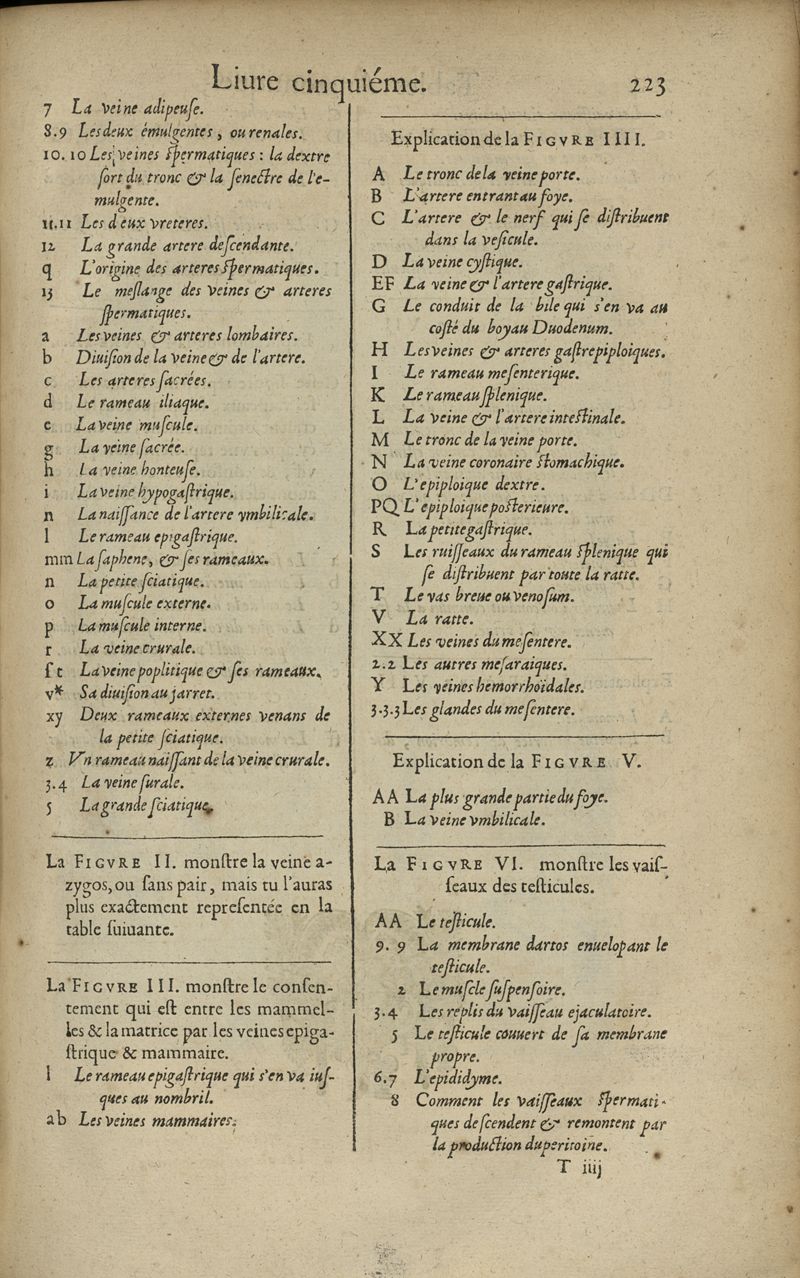 Liure cinquiéme. 223
7 La veine adipeuſe.
8.9 Les deux émulgentes, ou renales.
10. 10 Les veines ſpermatiques : la dextre
ſort du tronc & la ſeneſtre de l'e-
mulgente.
11.11 Les deux vreteres.
12 La grande artere deſcendante.
q L'origine des arteres ſpermatiques.
13 Le meſlange des veines & arteres
ſpermatiques.
a Les veines & arteres lombaires.
b Diuiſion de la veine & de l'artere.
c Les arteres ſacrées.
d Le rameau iliaque.
e La veine muſcule.
g La veine ſacrée.
h La veine honteuſe.
i La veine hypogaſtrique.
n La naiſſance de l'artere vmbilicale.
l Le rameau epigaſtrique.
mm La ſaphene, & ſes rameaux.
n La petite ſciatique.
o La muſcule externe.
p La muſcule interne.
r La veine crurale.
ſ t La veine poplitique & ſes rameaux.
v* Sa diuiſion au jarret.
xy Deux rameaux externes venans de
la petite ſciatique.
z Vn rameau naiſſant de la veine crurale.
3.4 La veine ſurale.
5 La grande ſciatique.
La FIGVRE II. monſtre la veine a-
zygos, ou ſans pair, mais tu l'auras
plus exactement repreſentée en la
table ſuiuante.
La FIGVRE III. monſtre le conſen-
tement qui eſt entre les mammel-
les & la matrice par les veines epiga-
ſtrique & mammaire.
l Le rameau epigaſtrique qui s'en va iuſ-
ques au nombril.
ab Les veines mammaires.
Explication de la FIGVRE IIII.
A Le tronc de la veine porte.
B L'artere entrant au foye.
C L'artere & le nerf qui ſe diſtribuent
dans la veſicule.
D La veine cyſtique.
EF La veine & l'artere gaſtrique.
G Le conduit de la bile qui s'en va au
coſté du boyau Duodenum.
H Les veines & arteres gaſtrepiploiques.
I Le rameau meſenterique.
K Le rameau ſplenique.
L La veine & l'artere inteſtinale.
M Le tronc de la veine porte.
N La veine coronaire ſtomachique.
O L'epiploique dextre.
PQ L'epiploique poſterieure.
R La petite gaſtrique.
S Les ruiſſeaux du rameau ſplenique qui
ſe diſtribuent par toute la ratte.
T Le vas breue ou venoſum.
V La ratte.
XX Les veines du meſentere.
2.2 Les autres meſaraiques.
Y Les veines hemorrhoïdales.
3.3.3 Les glandes du meſentere.
Explication de la FIGVRE V.
AA La plus grande partie du foye.
B La veine vmbilicale.
La FIGVRE VI. monſtre les vaiſ-
ſeaux des teſticules.
AA Le teſticule.
9. 9 La membrane dartos enuelopant le
teſticule.
2 Le muſcle ſuſpenſoire.
3.4 Les replis du vaiſſeau ejaculatoire.
5 Le teſticule couuert de ſa membrane
propre.
6.7 L'epididyme.
8 Comment les vaiſſeaux ſpermati-
ques deſcendent & remontent par
la production du peritoine.
T iiij